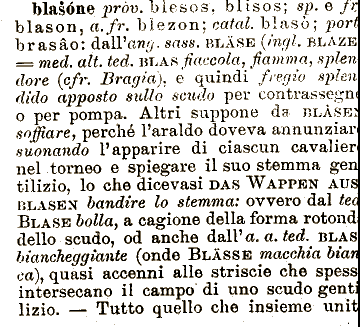 blaśóne pròv. blesos, blisos; sp. e fr
blason, a. fr. blezon; catal. blasò; port
brasâo: dall'ang. sass. BLÄSE (ingl. BLAZE
= med. alt. ted. BLAS fiaccola, fiamma, splen
dore (cfr. Bragia), e quindi fregio splen
dido apposto sullo scudo per contrassegn
o per pompa. Altri suppone da BLÄSEN
soffiare, perché l'araldo doveva annunziar
suonando l'apparire di ciascun cavalier
nel torneo e spiegare il suo stemma gen
tilizio, lo che dicevasi DAS WAPPEN AUS
BLASEN bandire lo stemma: ovvero dal ted
BLASE bolla, a cagione della forma rotond
dello scudo, od anche dall'a. a. ted. BLAS
biancheggiante (onde BLÄSSE macchia bian
ca), quasi accenni alle striscie che spess
intersecano il campo di uno scudo genti
lizio. — Tutto quello che insieme unit